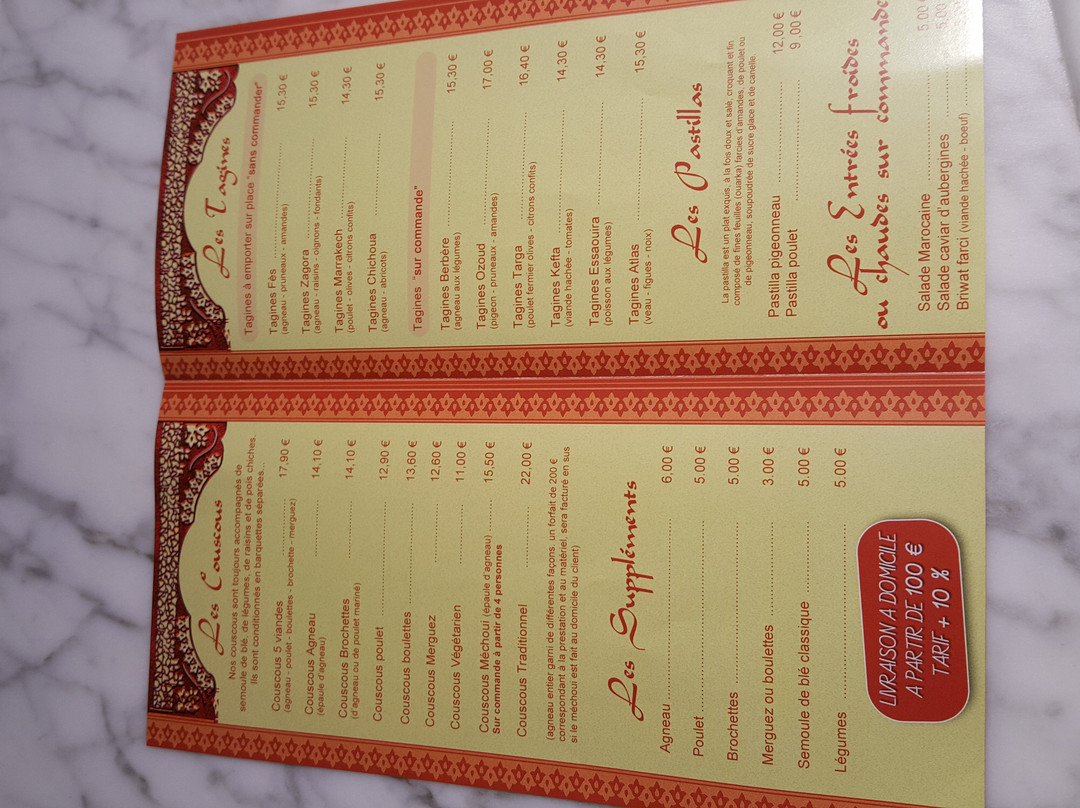 Les Couscous
Nos couscous sont toujours accompagnés de
semoule de blé, de légumes, de raisins et de pois chiches.
Ils sont conditionnés en barquettes séparées...
Couscous 5 viandes 17,90 €
(agneau - poulet - boulettes - brochette - merguez)
Couscous Agneau 14,10 €
(épaule d'agneau)
Couscous Brochettes 14,10 €
(d'agneau ou de poulet mariné)
Couscous poulet 12,90 €
Couscous boulettes 13,60 €
Couscous Merguez 12,60 €
Couscous Végétarien 11,00 €
Couscous Méchoui (épaule d'agneau) 15,50 €
Sur commande à partir de 4 personnes
Couscous Traditionnel 22,00 €
(agneau entier garni de différentes façons, un forfait de 200 €
correspondant à la prestation et au matériel, sera facturé en sus
si le méchoui est fait au domicile du client)
Les Suppléments
Agneau 6,00 €
Poulet 5.00 €
Brochettes 5.00 €
Merguez ou boulettes 3.00 €
Semoule de blé classique 5.00 €
Légumes 5.00 €
LIVRAISON A DOMICILE
A PARTIR DE 100 €
TARIF + 10 %
Les Tagines
Tagines à emporter sur place "sans commander"
Tagines Fès 15,30 €
(agneau - pruneaux - amandes)
Tagines Zagora 15,30 €
(agneau - raisins - oignons - fondants)
Tagines Marrakech 14,30 €
(poulet - olives - citrons confits)
Tagines Chichoua 15,30 €
(agneau - abricots)
Tagines "sur commande"
Tagines Berbère 15,30 €
(agneau aux légumes)
Tagines Ozoud 17,00 €
(pigeon - pruneaux - amandes)
Tagines Targa 16,40 €
(poulet fermier olives - citrons confits)
Tagines Kefta 14,30 €
(viande hachée - tomates)
Tagines Essaouira 14,30 €
(poisson aux légumes)
Tagines Atlas 15,30 €
(veau - figues - noix)
Les Pastillas
La pastilla est un plat exquis, à la fois doux et salé, croquant et fin
composé de fines feuilles (ouarka) farcies d'amandes, de poulet ou
de pigeonneau, soupoudrée de sucre glace et de canelle.
Pastilla pigeonneau 12,00 €
Pastilla poulet 9 ,00 €
Les Entrées froides
ou chaudes sur commande
Salade Marocaine 5.00 €
Salade caviar d'aubergines 5.00
Briwat farci (viande hachée - boeuf)